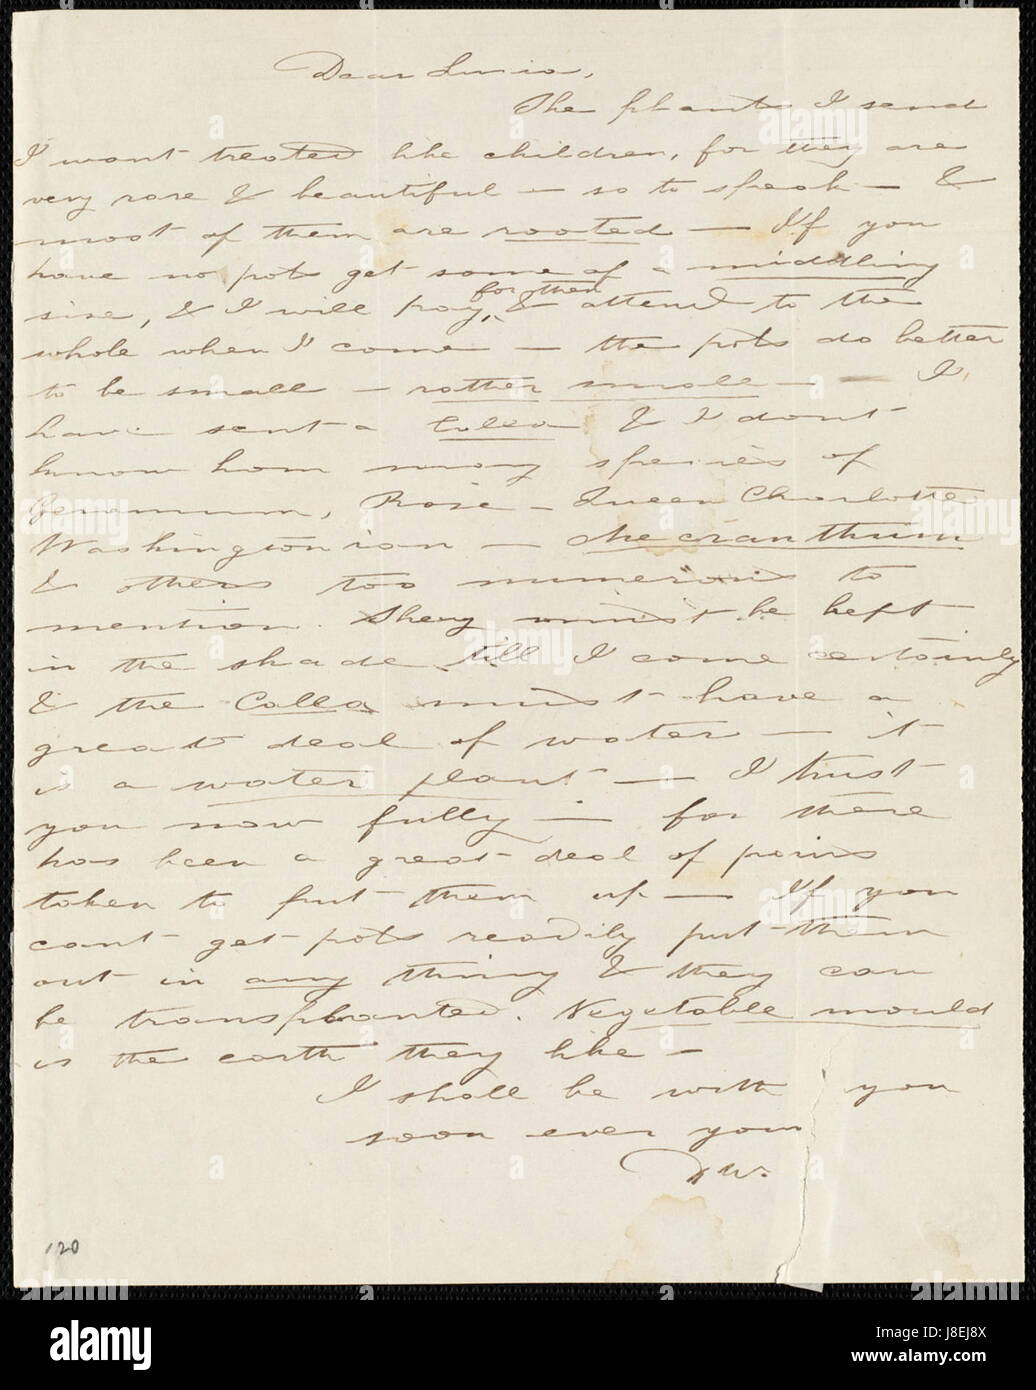 Dear Lucia,
The plants I send
I want treated like children, for they are
very rare & beautiful — so to speak — &
most of them are rooted — If you
have no pots get some of a middling
size, & I will pay for them & attend to the
whole when I come — the pots do better
to be small — rather small — I
have sent a Calla & I dont
know how many species of
Geranium, Rose — Queen Charlotte
Washingtonian —
& others too numerous to
mention. They must be kept
in the shade till I come certainly
& the Calla must have a
great deal of water — it
is a water plant — I trust
you now fully — for there
has been a great deal of pains
taken to put them up — If you
cant get pots readily put them
out in any thing & they can
be transplanted. Vegetable mould
is the earth they like —
I shall be with you
soon ever your
W.
120
alamy
Image ID: J8EJ8X
www.alamy.com